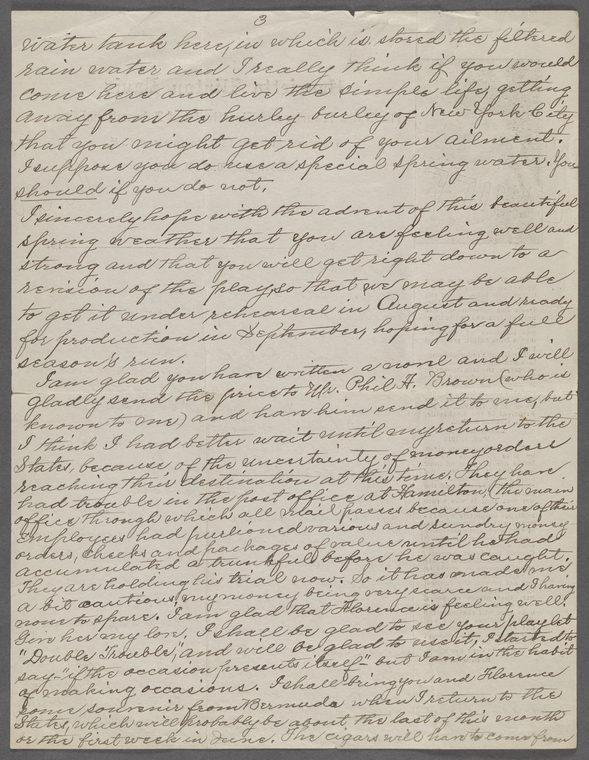 3
water tank here, in which is stored the filtered
rain water and I really think if you would
come here and live the simple life, getting
away from the hurley-burley of New York City
that you might get rid of your ailment.
I suppose you do use a special spring water. You
should if you do not.
I sincerely hope with the advent of this beautiful
spring weather that you are feeling well and
strong and that you will get right down to a
revision of the play, so that we may be able
to get it under rehearsal in August and ready
for production in September, hoping for a full
season's run.
I am glad you have written a novel and I will
gladly send the price to Mr. Phil A. Brown (who is
known to me) and have him send it to me, but
I think I had better wait until my return to the
States, because of the uncertainty of money orders
reaching their destination at this time. They have
had trouble in the post office at Hamilton, (the main
office through which all mail passes because one of their
employees had purlioned various and sundry money
orders, checks and packages of value until he had
accumulated a trunkful before he was caught.
They are holding his trial now. So it has made me
a bit cautious, my money being very scarce and I having
none to spare. I am glad that Florence is feeling well.
Give her my love. I shall be glad to see your playlet
"Double Trouble", and will be glad to use it, I started to
say "if the occasion presents itself" but I am in the habit
of making occasions. I shall bring you and Florence
some souvenir from Bermuda when I return to the
States, which will probably be about the last of this month
or the first week in June. The cigars will have to come from